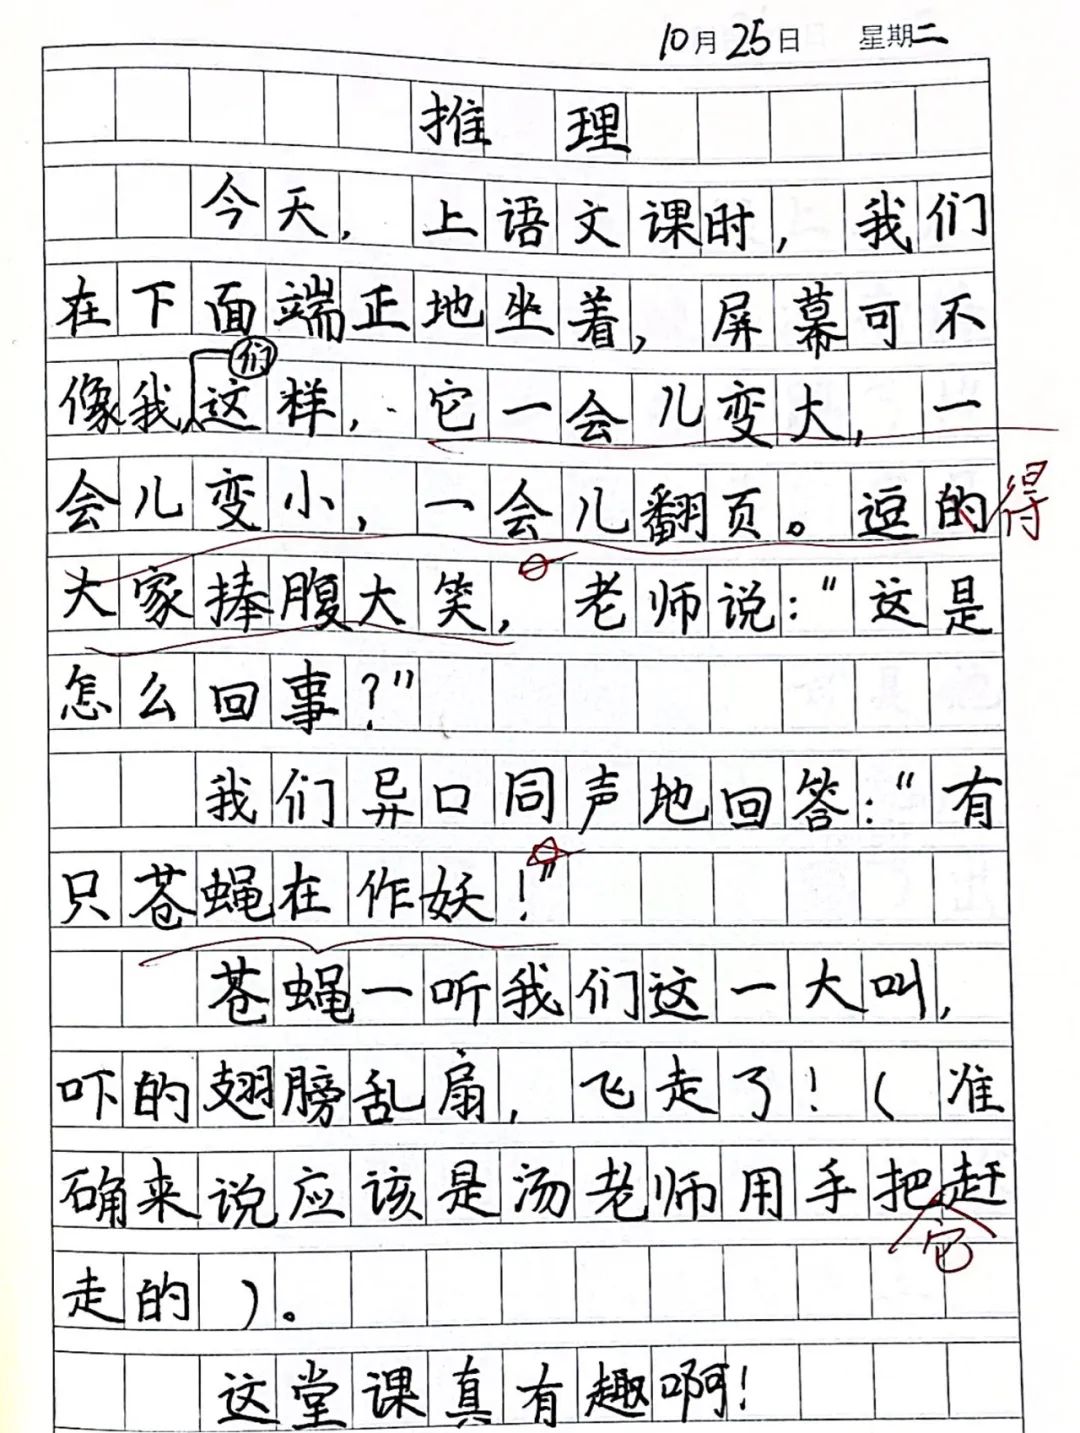 10月25日 星期二
推 理
今天，上语文课时，我们
在下面端正地坐着，屏幕可不
像我们这样，它一会儿变大，一
会儿变小，一会儿翻页。逗的得
大家捧腹大笑，老师说：“这是
怎么回事？”
我们异口同声地回答：“有
只苍蝇在作妖！”
苍蝇一听我们这一大叫，
吓的翅膀乱扇，飞走了！（准
确来说应该是汤老师用手把它赶
走的）。
这堂课真有趣啊！